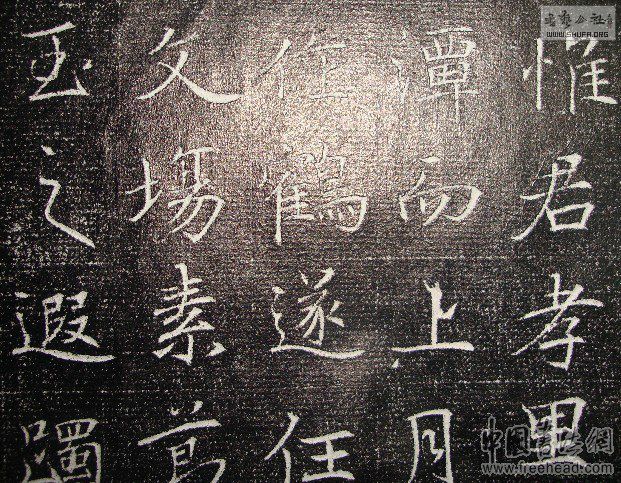 惟君孝
潭而上月
鶴遂任
文塲素
玉之遐躅
WWW.SHUFA.ORG
中國書法網
www.freehead.com